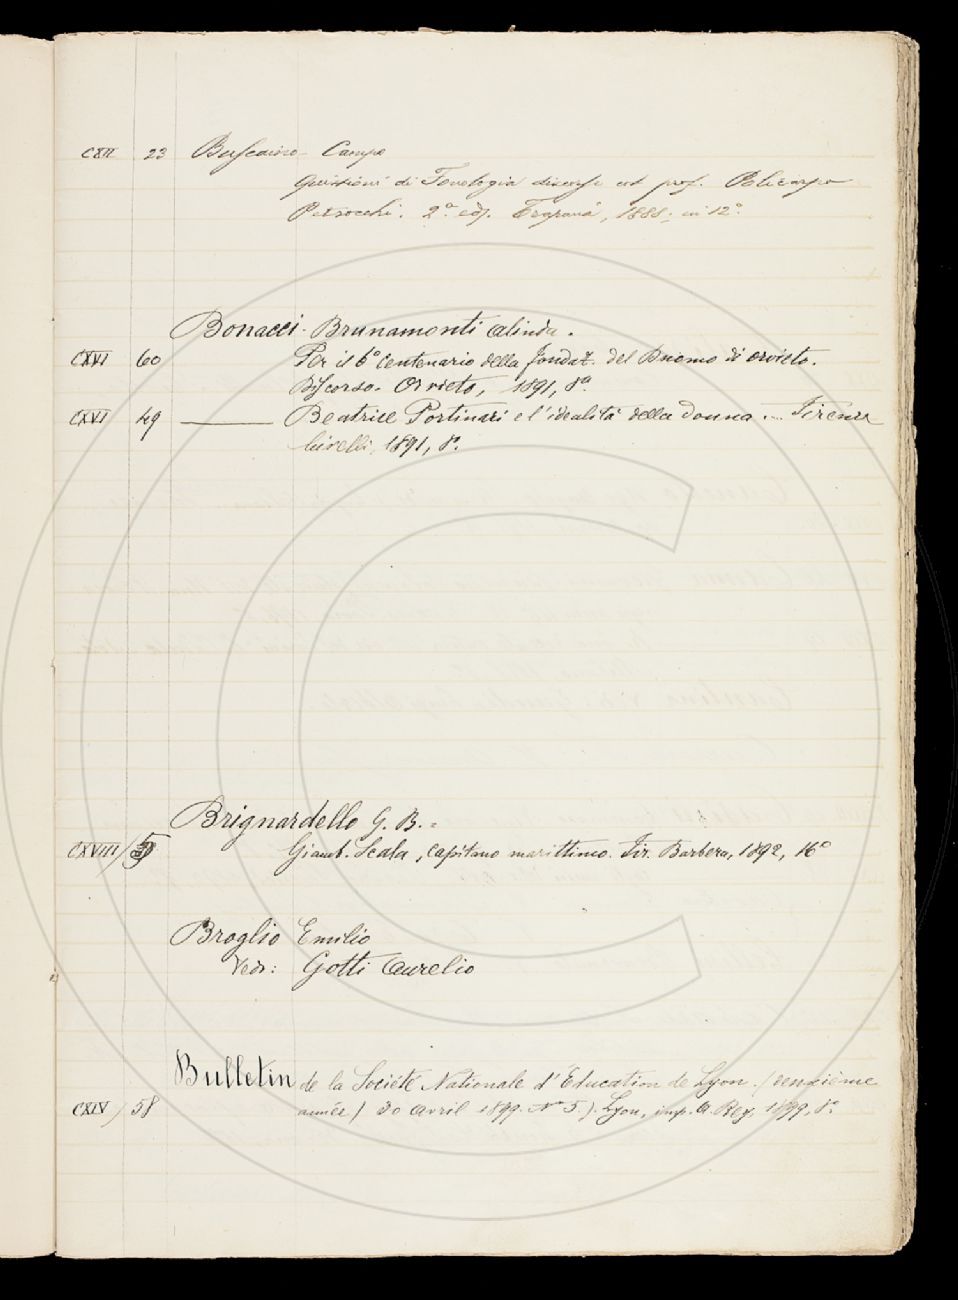 CXII 23 Buscaino - Campo
Quistioni di Fonologia discorse col prof. Policarpo
Petrocchi. 2ª. ediz. Trapani, 1888, in 12º.
Bonacci - Brunamonti Alinda.
CXVI 60 Per il 6º Centenario della fondaz. del Duomo di Orvieto.
Discorso - Orvieto, 1891, 8º
CXVI 49 ——— Beatrice Portinari e l'idealità della donna. — Firenze
Civelli, 1891, 8º.
Brignardello G. B. =
CXVIII / 5 Giamb. Scala, capitano marittimo. Fir. Barbera, 1892, 16º
Broglio Emilio
Vedi: Gotti Aurelio
Bulletin de la Société Nationale d'Education de Lyon. (
CXIV / 58 année) 30 Avril 1899. Nº 5.) Lyon, imp. A. Rey, 1899, 8º.